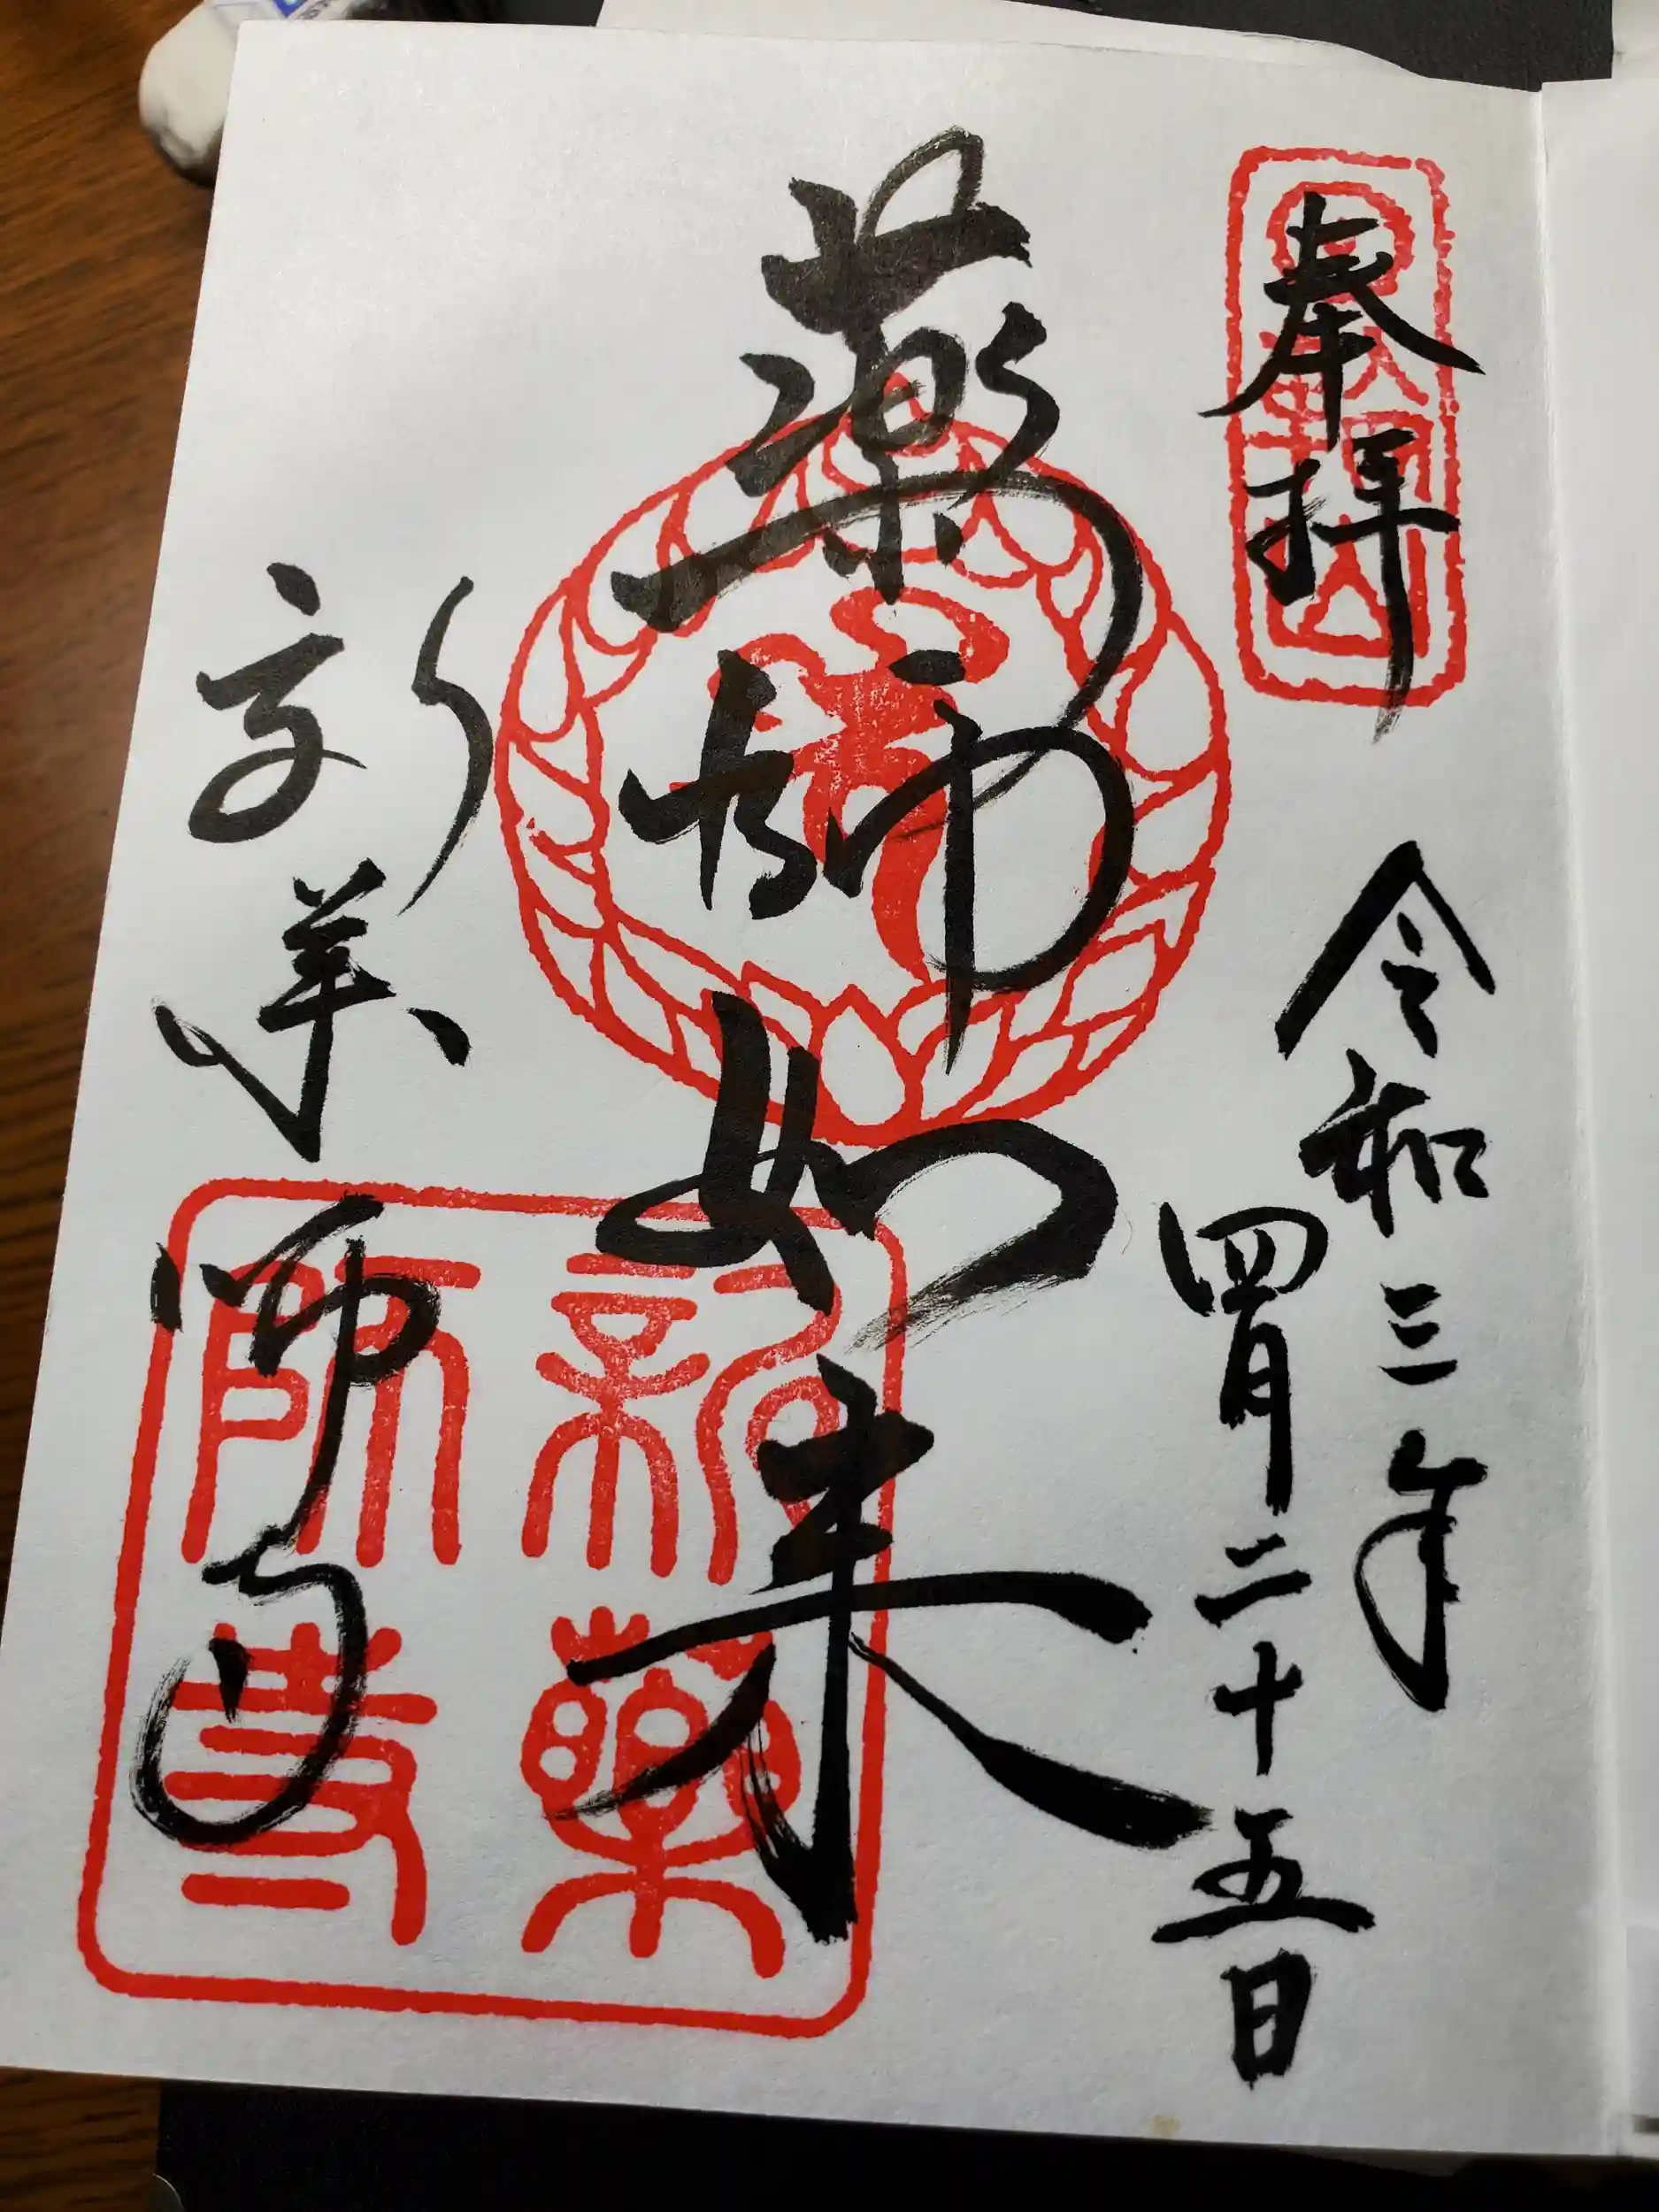 奉拝
日輪山
令和三年
四月二十五日
薬師如来
新薬師寺
新藥師寺